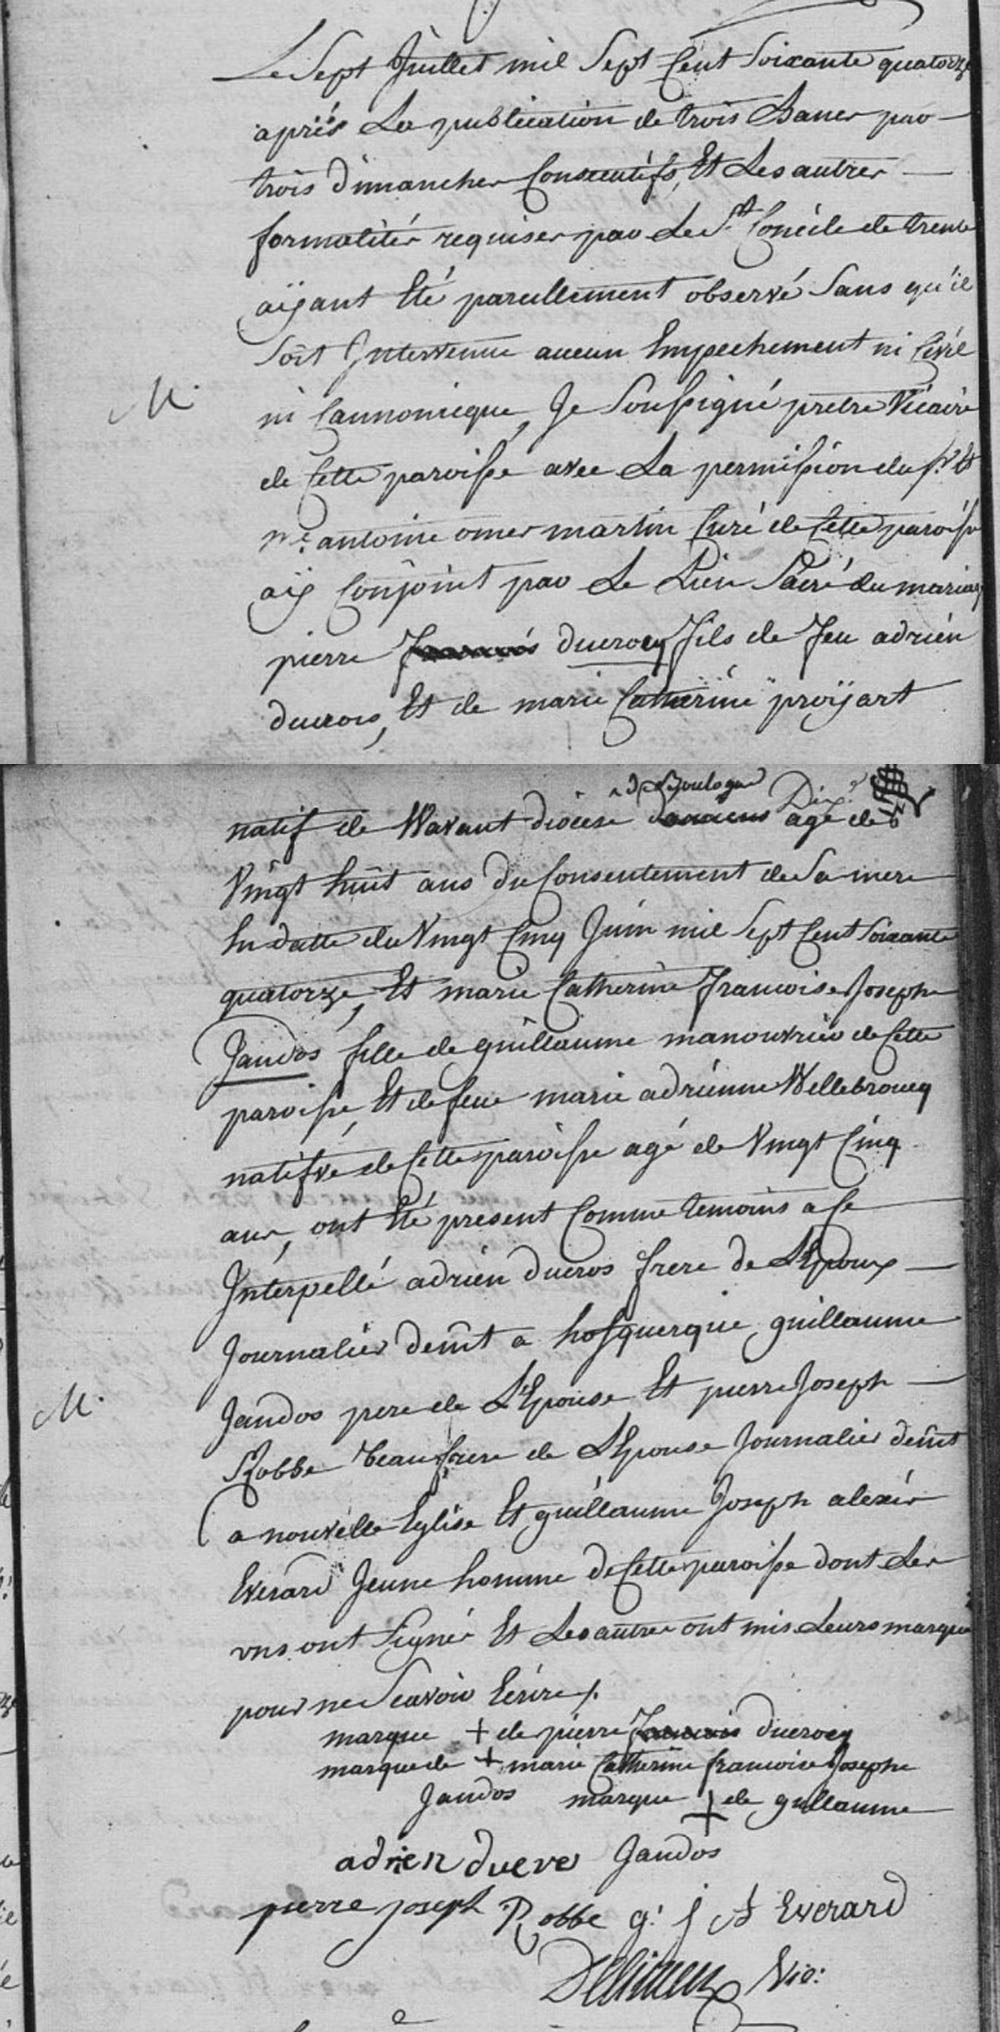 Le Sept Juillet mil Sept Cent Soixante quatorze
aprés La publication de trois Bancs par
trois dimanches Consecutifs, Et Les autres
formalités requises par Le St. Concile de trente
aÿant Eté pareillement observé Sans qu'il
Soit Intervenue aucun Empechement ni Civil
M.
ni Cannonicque, Je Soussigné pretre Vicaire
de Cette paroisse avec La permission du Sr. Et
me. antoine omer martin Curé de Cette paroisse
aÿ Conjoint par Le Lien Sacré du mariage
pierre francois ducrocq fils de feu adrien
ducrocs, Et de marie Catherine proÿart
d Boulogne Dix
natif de Wavant diocese age de
Vingt huit ans du Consentement de Sa mere
En datte du Vingt Cinq Juin mil Sept Cent Soixante
quatorze, Et marie Catherine francoise Josephe
Jandos fille de guillaume manouvrier de Cette
paroisse, Et de feue marie adrienne Wellebroucq
natifve de Cette paroisse agé de Vingt Cinq
ans, ont Eté present Comme temoins a Ce
Interpellé adrien ducros frere de L'Epoux
Journalier demt a hosquerque, guillaume
M.
Jandos pere de L'Epouse Et pierre Joseph
Robbe beaufrere de L'Epouse Journalier demt
a nouvelle Eglise Et guillaume Joseph alexis
Everard Jeune homme de Cette paroisse dont Les
uns ont Signé Et Les autres ont mis Leurs marque
pour ne Scavoir Ecrire
marque + de pierre francois ducrocq
marque de + marie Catherine francoise Josephe
Jandos marque + de guillaume
adrien ducro Jandos
pierre joseph Robbe g. j A Everard
Vic: